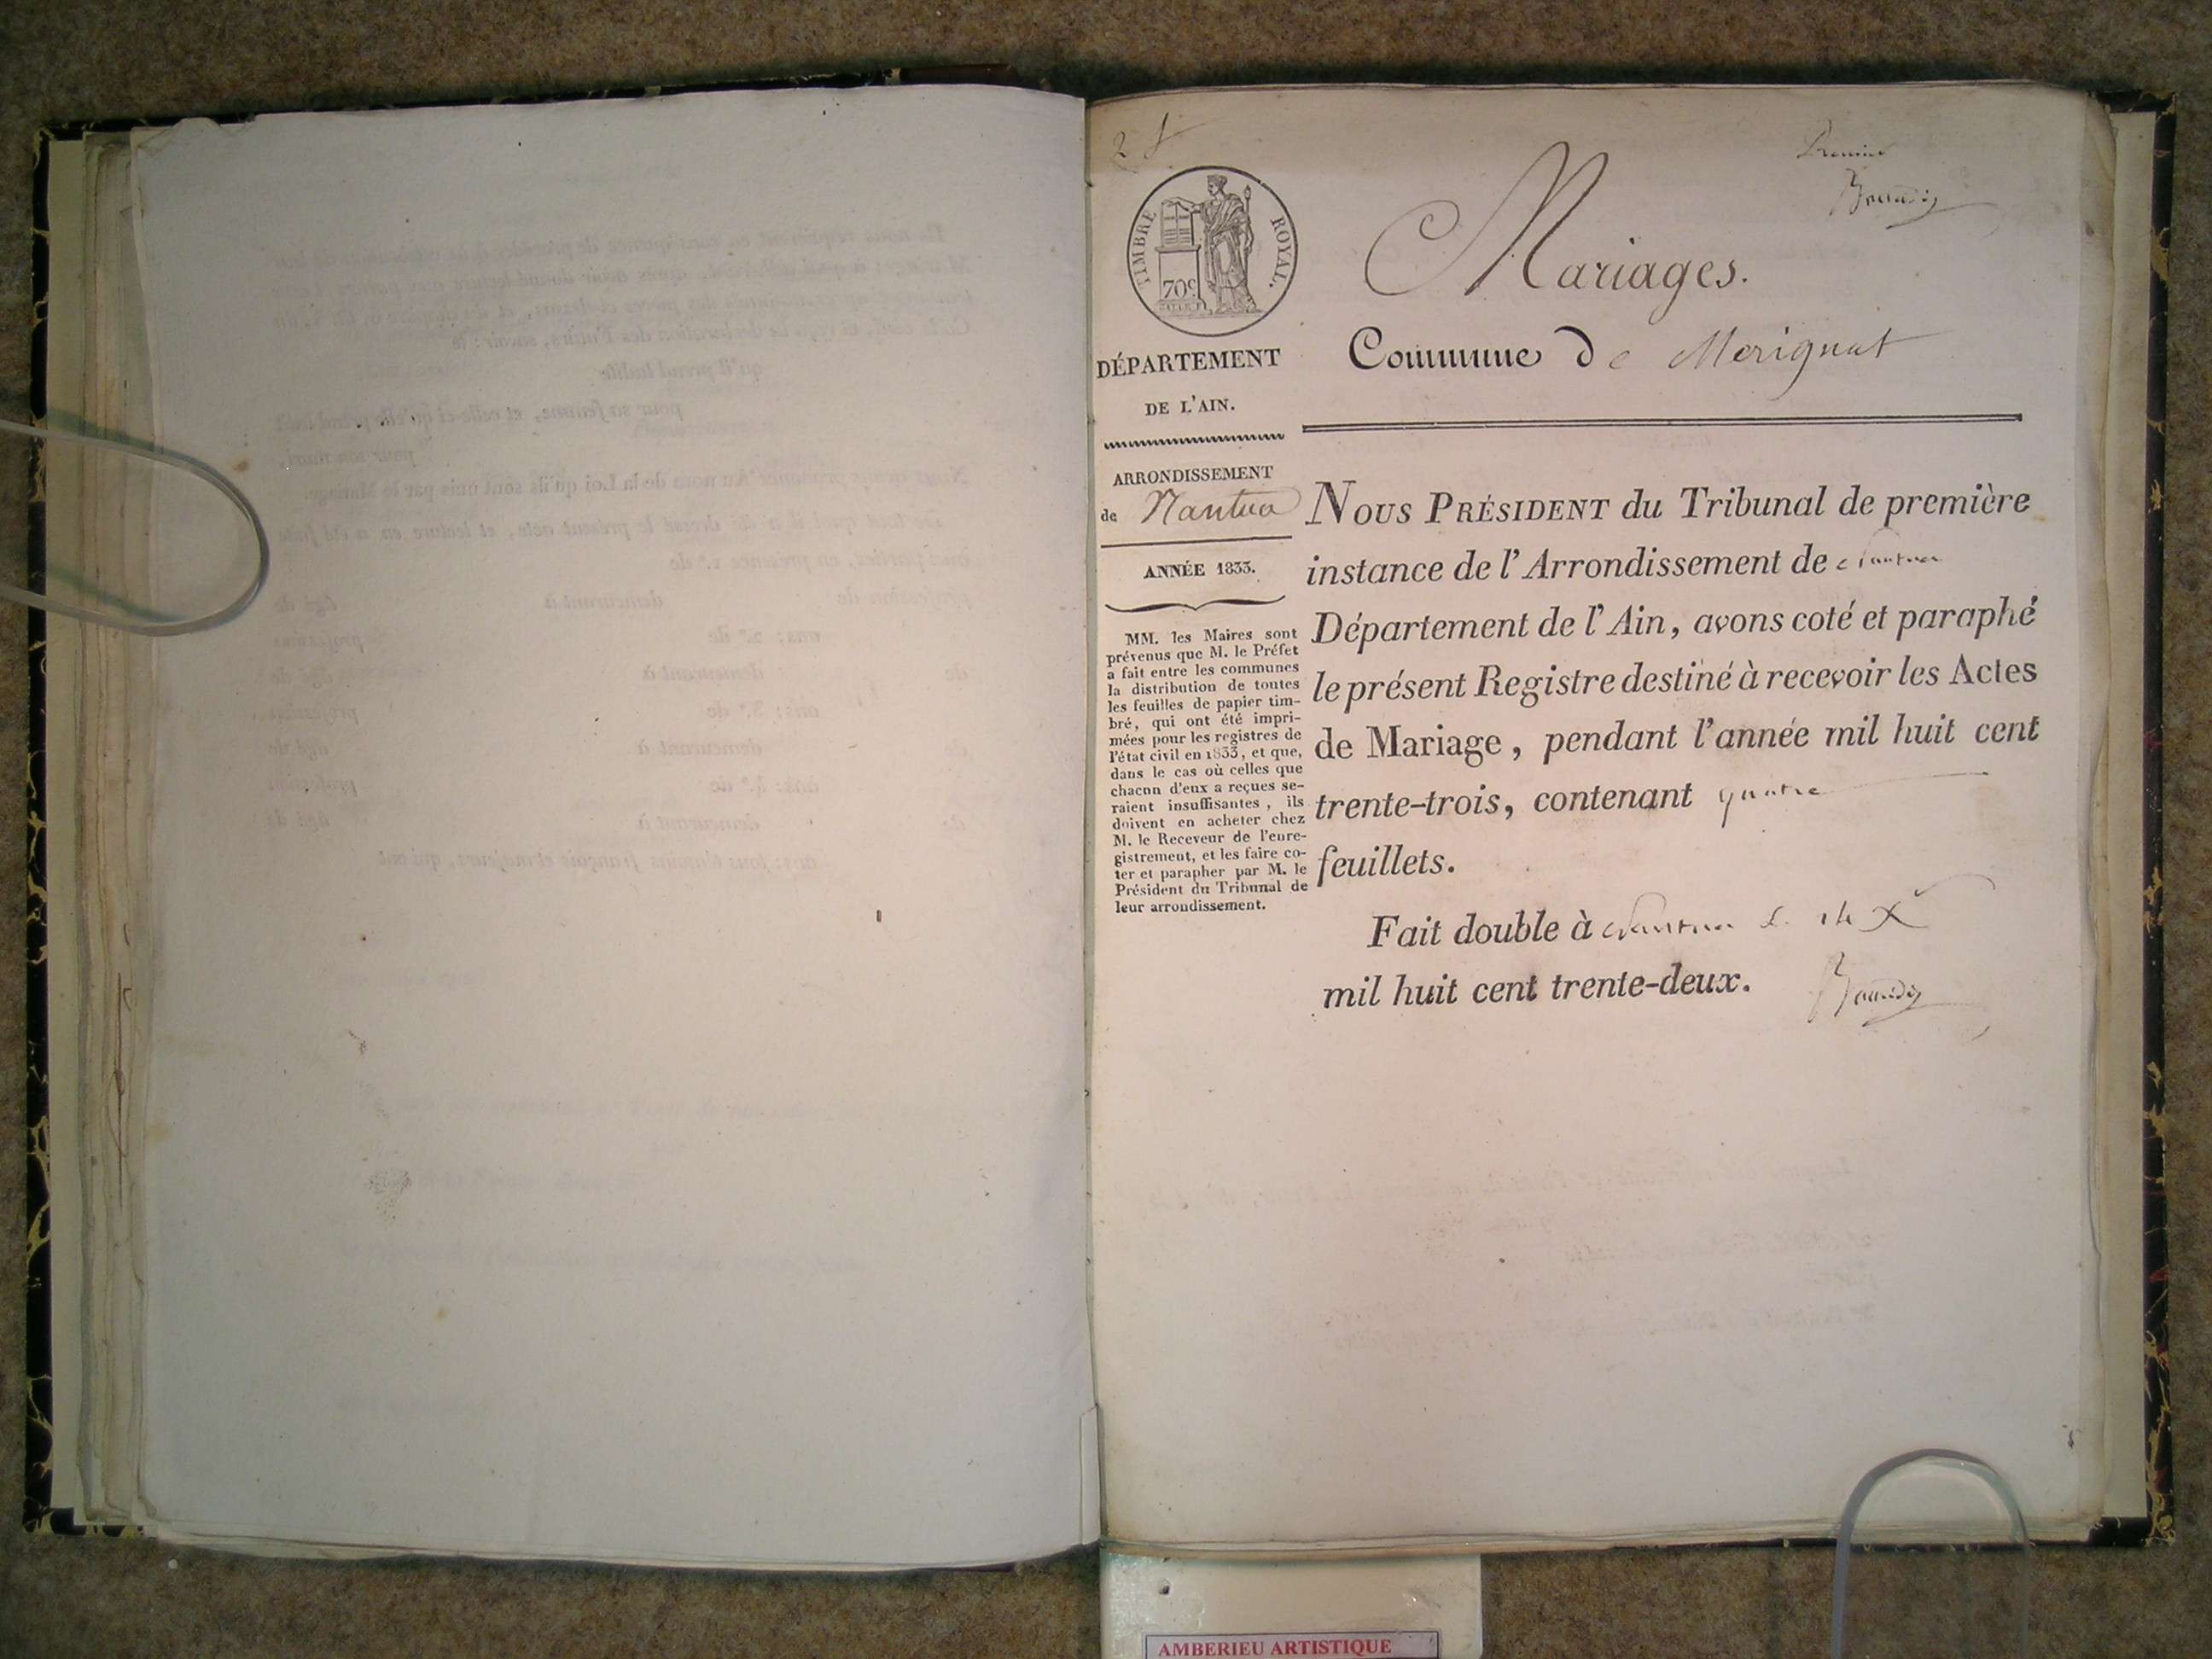 Premier
TIMBRE ROYAL.
70c
Mariages.
Commune de Merignat
DÉPARTEMENT
DE L'AIN.
ARRONDISSEMENT
de Nantua
ANNÉE 1833.
MM. les Maires sont
prévenus que M. le Préfet
a fait entre les communes
la distribution de toutes
les feuilles de papier tim-
bré, qui ont été impri-
mées pour les registres de
l'état civil en 1833, et que,
dans le cas où celles que
chacun d'eux a reçues se-
raient insuffisantes, ils
doivent en acheter chez
M. le Receveur de l'enre-
gistrement, et les faire co-
ter et parapher par M. le
Président du Tribunal de
leur arrondissement.
NOUS PRÉSIDENT du Tribunal de première
instance de l'Arrondissement de Nantua
Département de l'Ain, avons coté et paraphé
le présent Registre destiné à recevoir les Actes
de Mariage, pendant l'année mil huit cent
trente-trois, contenant quatre
feuillets.
Fait double à Nantua le 14 X
mil huit cent trente-deux.
AMBERIEU ARTISTIQUE